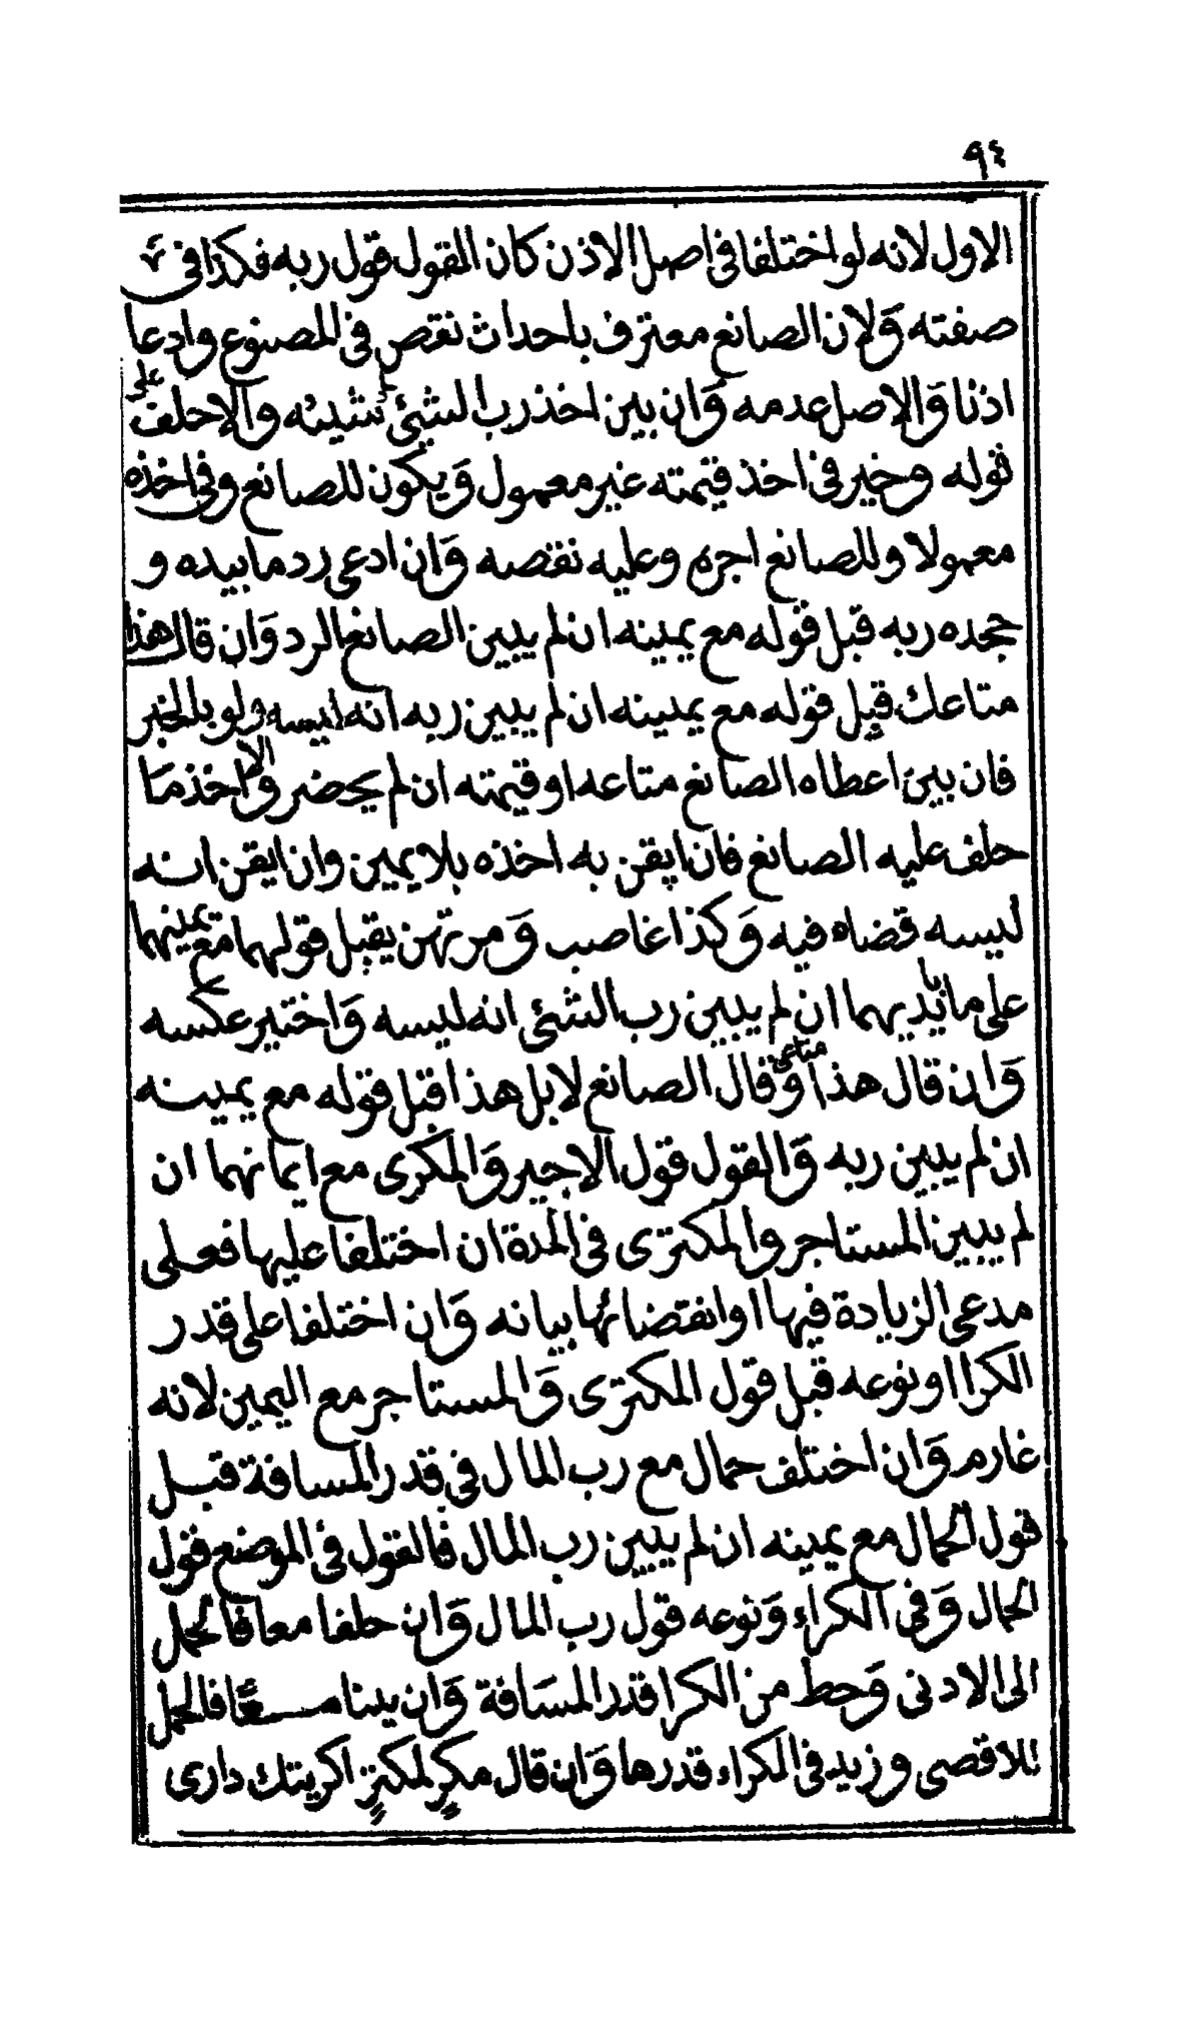 ٩٤
الاول لانه لو اختلفا فى اصل الاذن كان القول قول ربه فكذا فى
صفته وَلان الصانع معترف باحداث نقص فى المصنوع وادعا
اذنا وَالاصل عدمه وَان بين اخذ رب الشئ شيئه والاحلف على
قوله وخير فى اخذ قيمته غير معمول وَيكون للصانع وفى اخذه
معمولا وللصانع اجره وعليه نقصه وَان ادعى رد ما بيده و
جحده ربه قبل قوله مع يمينه ان لم يبين الصانع الرد وَان قال هذا
متاعك قبل قوله مع يمينه ان لم يبين ربه انه ليسه ولو بالخبر
فان بين اعطاه الصانع متاعه او قيمته ان لم يحضر وَالا اخذ ما
حلف عليه الصانع فان ايقن به اخذه بلا يمين وان ايقن انه
ليسه قضاه فيه وَكذا غاصب وَمرتهن يقبل قولهما مع يمينهما
على ما بايديهما ان لم يبين رب الشئ انه ليسه وَاختير عكسه
وَان قال هذا متاعى وَقال الصانع لا بل هذا قبل قوله مع يمينه
ان لم يبين ربه وَالقول قول الاجير وَالمكرى مع ايمانهما ان
لم يبين المستاجر والمكترى فى المدة ان اختلفا عليها فعلى
مدعى الزيادة فيها او انقضائها بيانه وَان اختلفا على قدر
الكرا او نوعه قبل قول المكترى وَالمستاجر مع اليمين لانه
غارم وَان اختلف حمال مع رب المال فى قدر المسافة قبل
قول الحمال مع يمينه ان لم يبين رب المال فالقول فى الموضع قول
الحمال وَفى الكراء وَنوعه قول رب المال وَان حلفا معا فالحمل
الى الادنى وَحط من الكرا قدر المسَافة وَان بينا معًا فالحمل
للاقصى وزيد فى الكراء قدرها وَان قال مكرٍ لمكترٍ اكريتك دارى